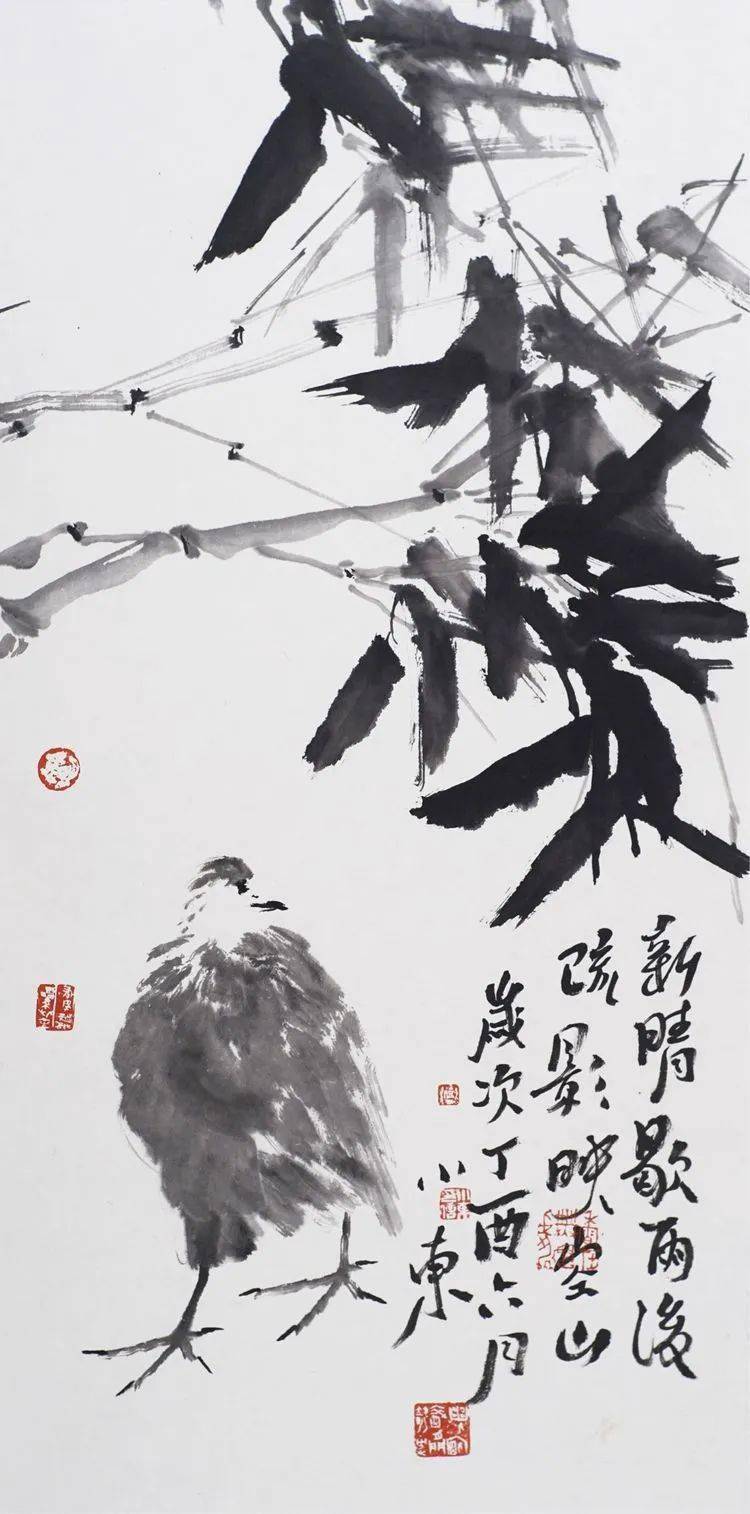 新晴歇雨後
疏影映空山
歲次丁酉六月
小東